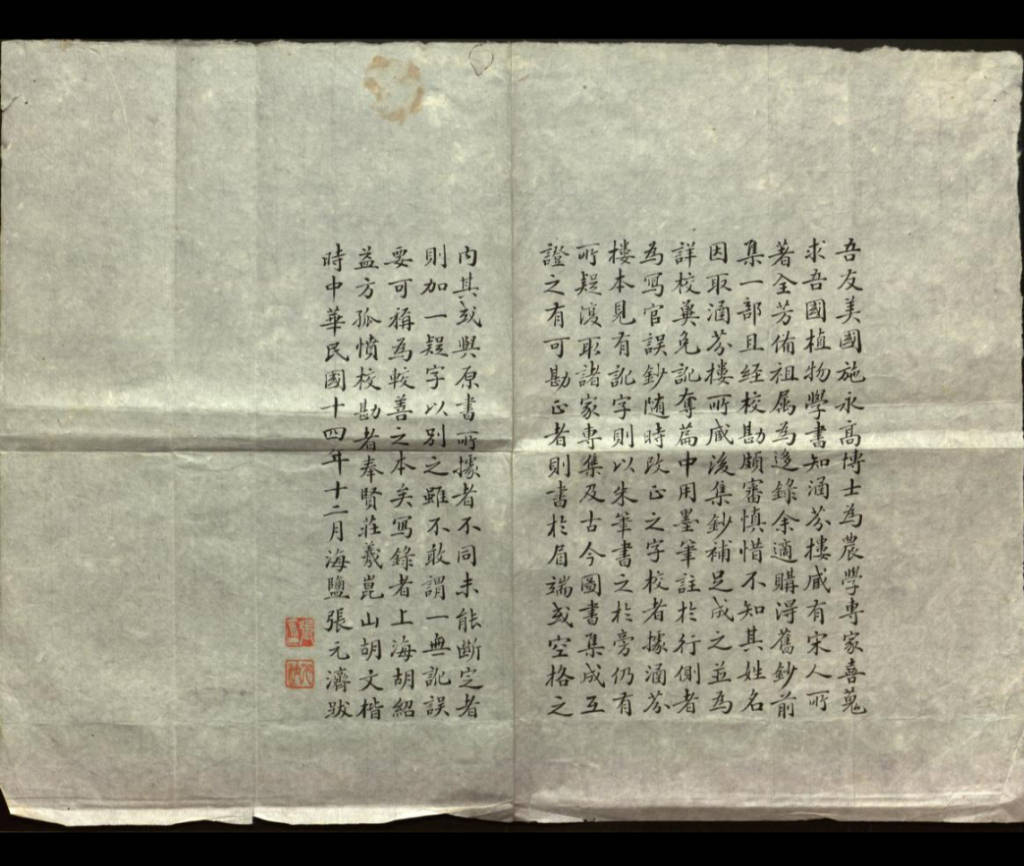 吾友美國施永高博士為農學專家喜蒐
求吾國植物學書知涵芬樓藏有宋人所
著全芳備祖屬為迻錄余適購得舊鈔前
集一部且經校勘頗審慎惜不知其姓名
因取涵芬樓所藏後集鈔補足成之並為
詳校冀免訛奪篇中用墨筆註於行側者
為寫官誤鈔随時改正之字校者據涵芬
樓本見有訛字則以朱筆書之於旁仍有
所疑復取諸家專集及古今圖書集成互
證之有可勘正者則書於眉端或空格之
內其或與原書所據者不同未能斷定者
則加一疑字以別之雖不敢謂一無訛誤
要可稱為較善之本矣寫錄者上海胡紹
益方孤憤校勘者奉賢莊羲崑山胡文楷
時中華民國十四年十二月海鹽張元濟跋